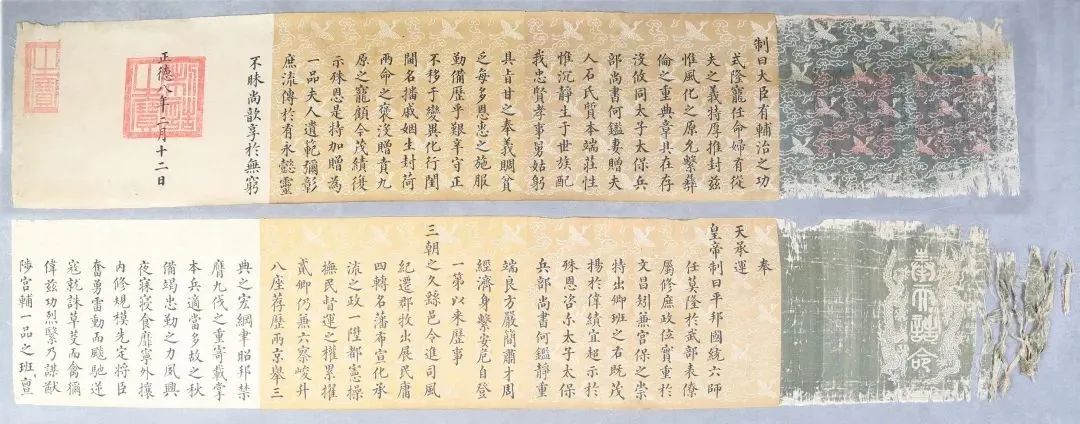 制曰大臣有輔治之功
式隆寵任命婦有從
夫之義特厚推封兹
惟風化之原允繫彝
倫之重典章具在存
沒攸同太子太保兵
部尚書何鑑妻贈夫
人石氏質本端莊性
惟沉靜生于世族配
我忠賢孝事舅姑躬
具旨甘之奉義賙貧
乏每多恩忠之施服
勤備歷乎艱辛守正
不移于變異化行閨
閫名擋戚姻生封荷
兩命之褒沒贈賁九
原之寵顧今茂績復
示殊恩是持加贈為
一品夫人遺範彌彰
庶流傳於有永懿靈
不昧尚歆享於無窮
正德八年二月十二日
制誥之寶
之寶
奉天誥命
奉
天承運
皇帝制曰平邦國統六師
任莫隆於武部表僚
屬修庶政位實重於
文昌矧兼宮保之崇
特出卿班之右既茂
揚於偉績宜超示於
殊恩咨尓太子太保
兵部尚書何鑑靜重
端良方嚴簡肅才周
經濟身繫安危自登
一第以來歷事
三朝之久縣邑令進司風
紀遷郡牧出展民庸
四轉名藩布宣化承
流之政一陞都憲操
撫民督運之權累擢
貳卿仍兼六察峻升
八座荐歷兩京舉三
典之宏綱聿昭邦禁
膺九伐之重寄載掌
本兵適當多故之秋
備竭忠勤之力夙興
夜寐寢食靡寧外攘
內修規模先定將臣
奮勇雷動而飈馳逆
寇就誅草芟而禽獮
偉兹功烈繄乃謀猷
陟宮輔一品之班亶